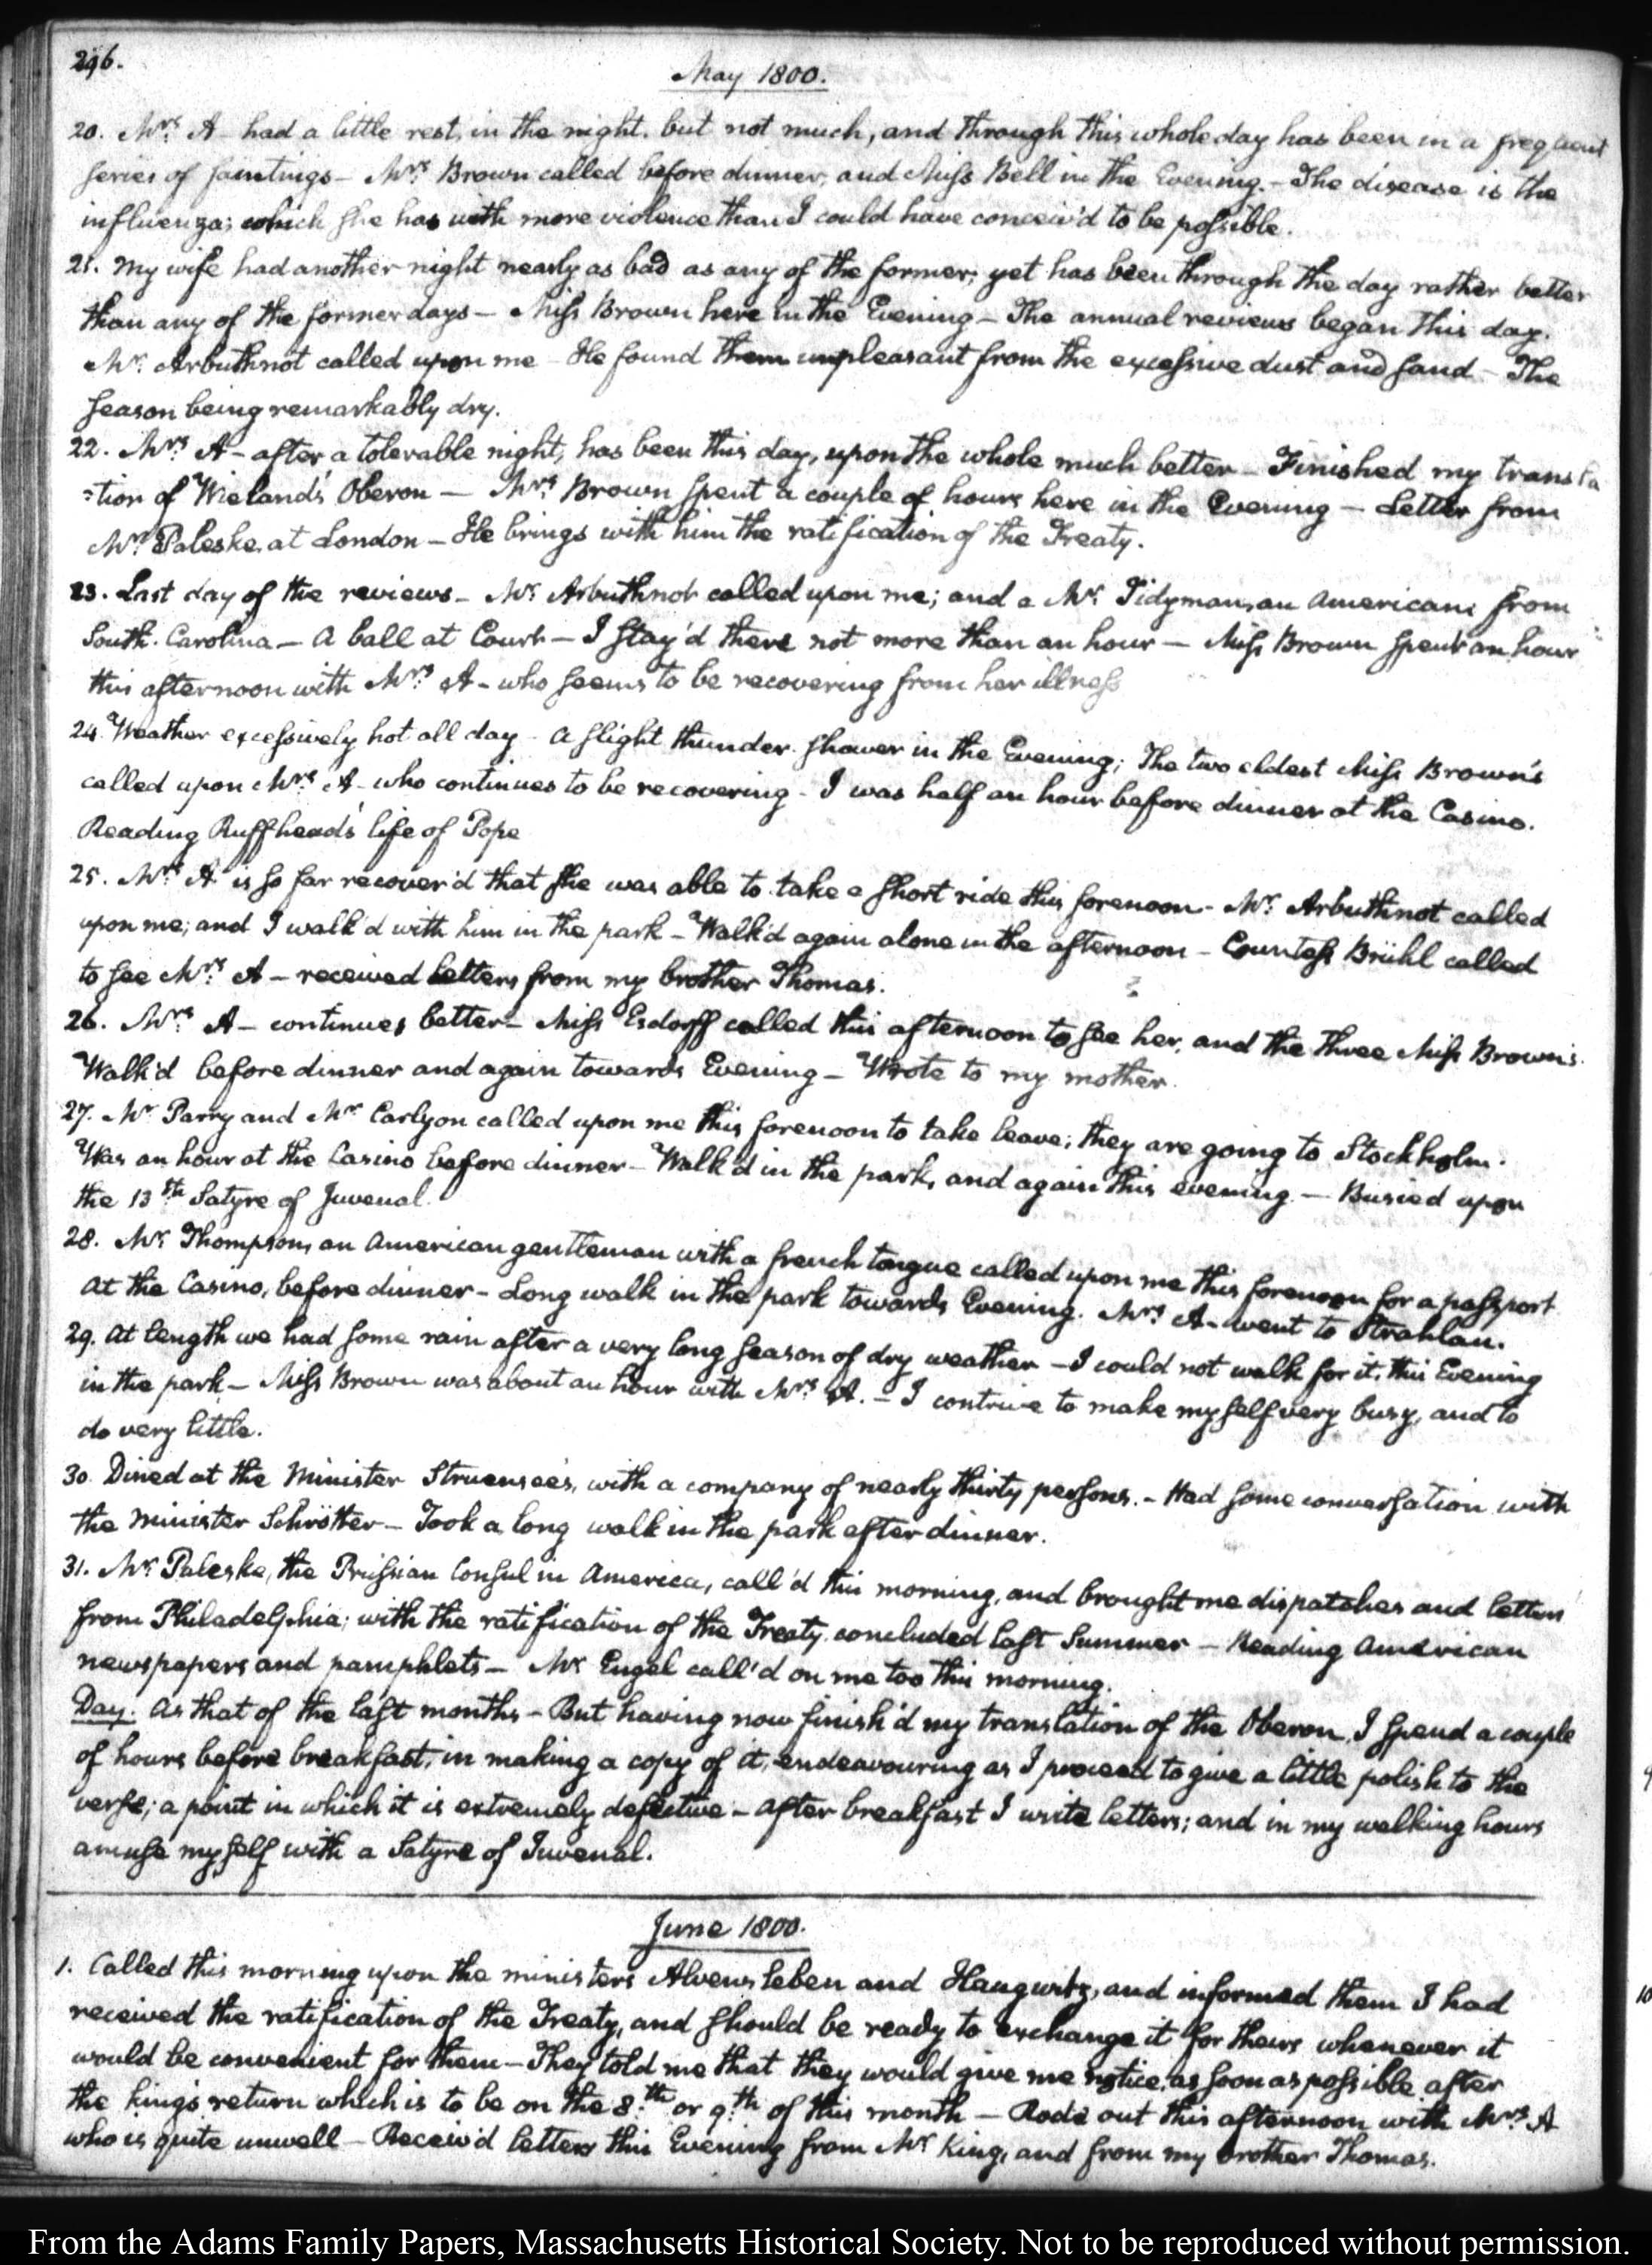 296.
May 1800.
20. Mrs. A- had a little rest, in the night. but not much, and through this whole day has been in a frequent
series of faintings- Mrs. Brown called before dinner, and Miss Bell in the Evening.- The disease is the
influenza; which she has with more violence than I could have conceiv'd to be possible.
21. My wife had another night nearly as bad as any of the former; yet has been through the day rather better
than any of the former days- Miss Brown here in the Evening- The annual reviews began this day.
Mr. Arbuthnot called upon me- He found them unpleasant from the excessive dust and sand- The
season being remarkably dry.
22. Mrs. A- after a tolerable night, has been this day, upon the whole much better- Finished my transla
=tion of Wieland's Oberon- Mrs. Brown spent a couple of hours here in the Evening- Letter from
Mr. Paleske at London- He brings with him the ratification of the Treaty.
23. Last day of the reviews- Mr. Arbuthnot called upon me; and a Mr. Tidyman, an American from
South-Carolina- A ball at Court- I stay'd there not more than an hour- Miss Brown spent an hour
this afternoon with Mrs. A- who seems to be recovering from her illness
24. Weather excessively hot all day- A slight thunder-shower in the Evening; The two eldest Miss Brown's
called upon Mrs. A- who continues to be recovering- I was half an hour before dinner at the Casino.
Reading Ruffhead's life of Pope
25. Mrs. A is so far recover'd that she was able to take a short ride this forenoon- Mr. Arbuthnot called
upon me; and I walk'd with him in the park- Walk'd again alone in the afternoon- Countess Brühl called
to see Mrs. A- received letters from my brother Thomas.
26. Mrs. A- continues better- Miss Esdorff called this afternoon to see her, and the three Miss Brown's.
Walk'd before dinner and again towards Evening- Wrote to my mother.
27. Mr Parry and Mr Carlyon called upon me this forenoon to take leave; they are going to Stockholm.
Was an hour at the Casino before dinner- Walk'd in the park, and again this evening.- Busied upon
the 13th. Satyre of Juvenal.
28. Mr. Thompson, an American gentleman with a french tongue called upon me this forenoon for a passport
At the Casino, before dinner- Long walk in the park towards Evening. Mrs. A- went to Strahlau.
29. At length we had some rain after a very long season of dry weather- I could not walk for it, this Evening
in the park- Miss Brown was about an hour with Mrs. A.- I contrive to make myself very busy, and to
do very little.
30. Dined at the Minister Struensee's, with a company of nearly thirty persons.- Had some conversation with
the Minister Schrötter- Took a long walk in the park after dinner.
31. Mr. Paleske, the Prussian Consul in America, call'd this morning, and brought me dispatches and letters
from Philadelphia; with the ratification of the Treaty concluded last Summer- Reading American
newspapers and pamphlets- Mr Engel call'd on me too this morning.
Day. As that of the last months- But having now finish'd my translation of the Oberon, I spend a couple
of hours before breakfast, in making a copy of it, endeavouring as I proceed to give a little polish to the
verse; a point in which it is extremely defective- After breakfast I write letters; and in my walking hours
amuse myself with a Satyre of Juvenal.
June 1800.
1. Called this morning upon the ministers Alvensleben and Haugwitz, and informed them I had
received the ratification of the Treaty, and should be ready to exchange it for theirs whenever it
would be convenient for them- They told me that they would give me notice, as soon as possible after
the king's return which is to be on the 8.th or 9.th of this month- Rode out this afternoon with Mrs. A
who is quite unwell- Receiv'd letters this Evening from Mr King, and from my brother Thomas.
From the Adams Family Papers, Massachusetts Historical Society. Not to be reproduced without permission.